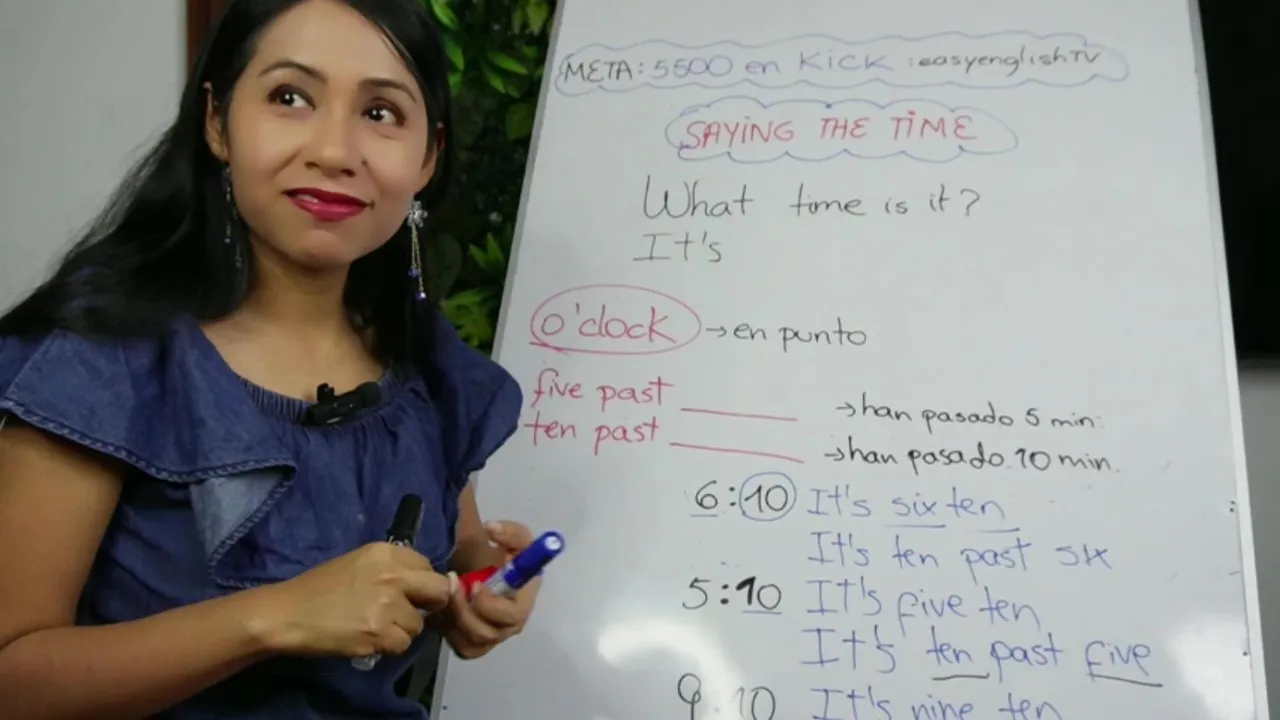 META: 5500 en Kick : easyenglishTV
SAYING THE TIME
What time is it?
It's
o'clock → en punto
five past ______ → han pasado 5 min.
ten past ______ → han pasado 10 min.
6:10 It's six ten
It's ten past six
5:10 It's five ten
It's ten past five
9 10 It's nine ten